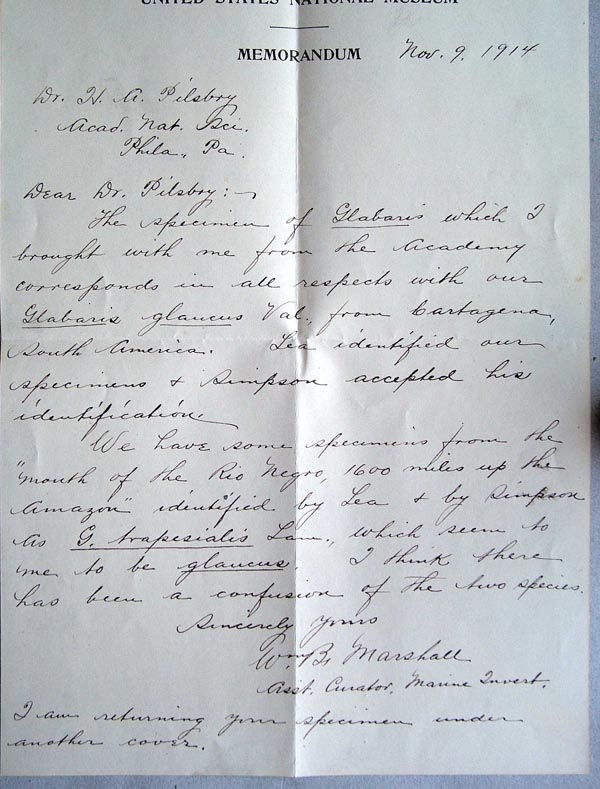 UNITED STATES NATIONAL MUSEUM
MEMORANDUM Nov. 9. 1914
Dr. H. A. Pilsbry
Acad. Nat. Sci.
Phila., Pa.
Dear Dr. Pilsbry:-
The specimen of Glabaris which I
brought with me from the Academy
corresponds in all respects with our
Glabaris glaucus Val., from Cartagena,
South America. Lea identified our
specimens & Simpson accepted his
identification.
We have some specimens from the
"mouth of the Rio Negro, 1600 miles up the
Amazon" identified by Lea & by Simpson
as G. trapesialis Lam., which seem to
me to be glaucus. I think there
has been a confusion of the two species.
Sincerely yours
Wm. B. Marshall
Asst. Curator, Marine Invert.
I am returning your specimen under
another cover.